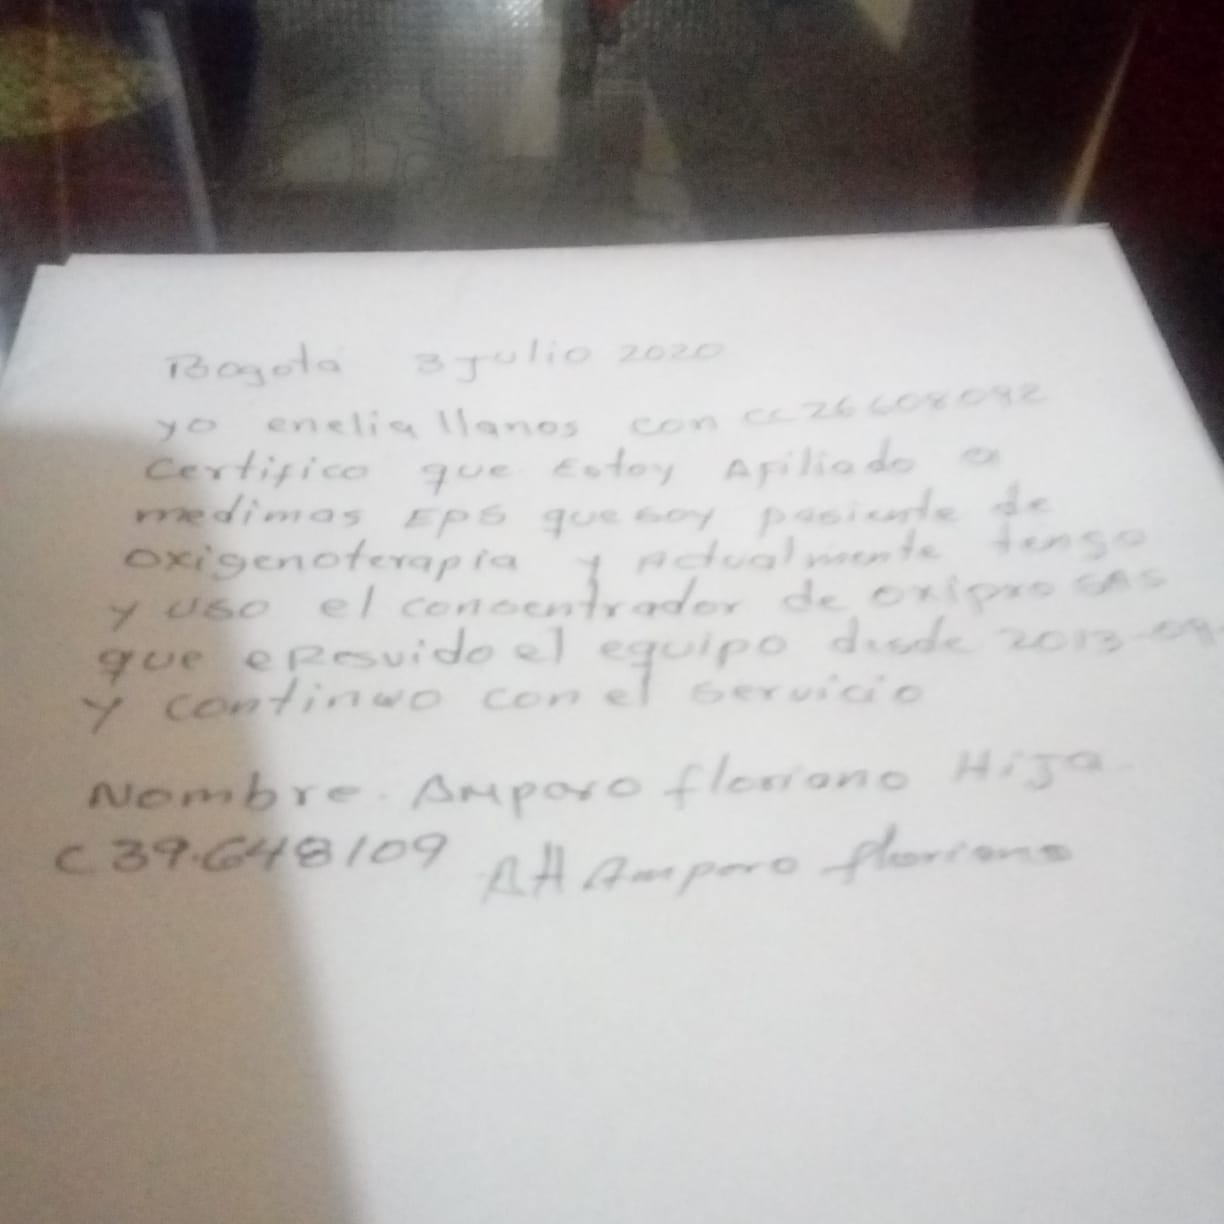 Bogota 3 julio 2020
yo enelia llanos con cc 26608092
certifico que Estoy Afiliado a
medimas EPS que soy pasiente de
oxigenoterapia y Actualmente tengo
y uso el consentrador de oxipro SAS
que e Resvido el equipo desde 2013-09
y continuo con el servicio
Nombre. Amparo floriano Hija
C 39.648109 Att Amparo floriano